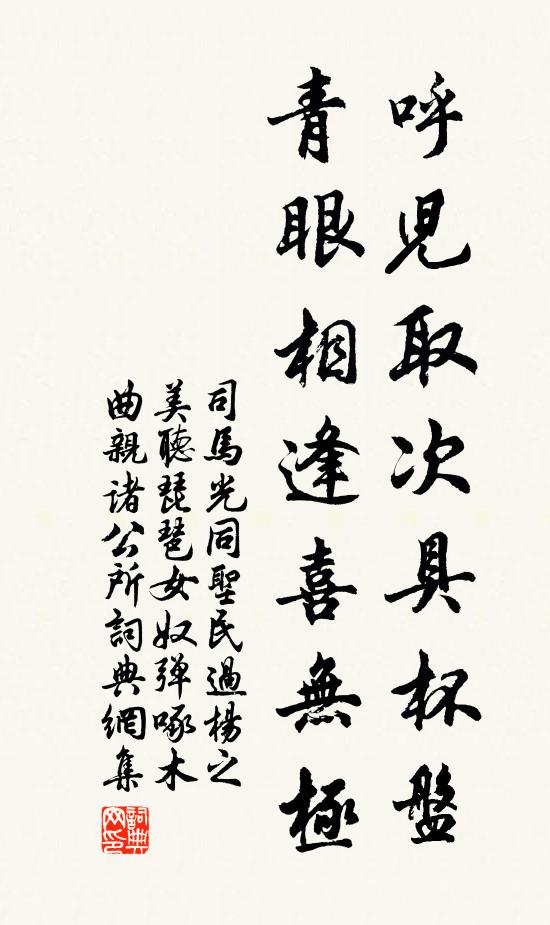 呼児取次具杯盤
青眼相逢喜無極
司馬光同聖民過楊之
美聽琵琶女奴弹啄木
曲親诸公所詞典網集
詞典
网印